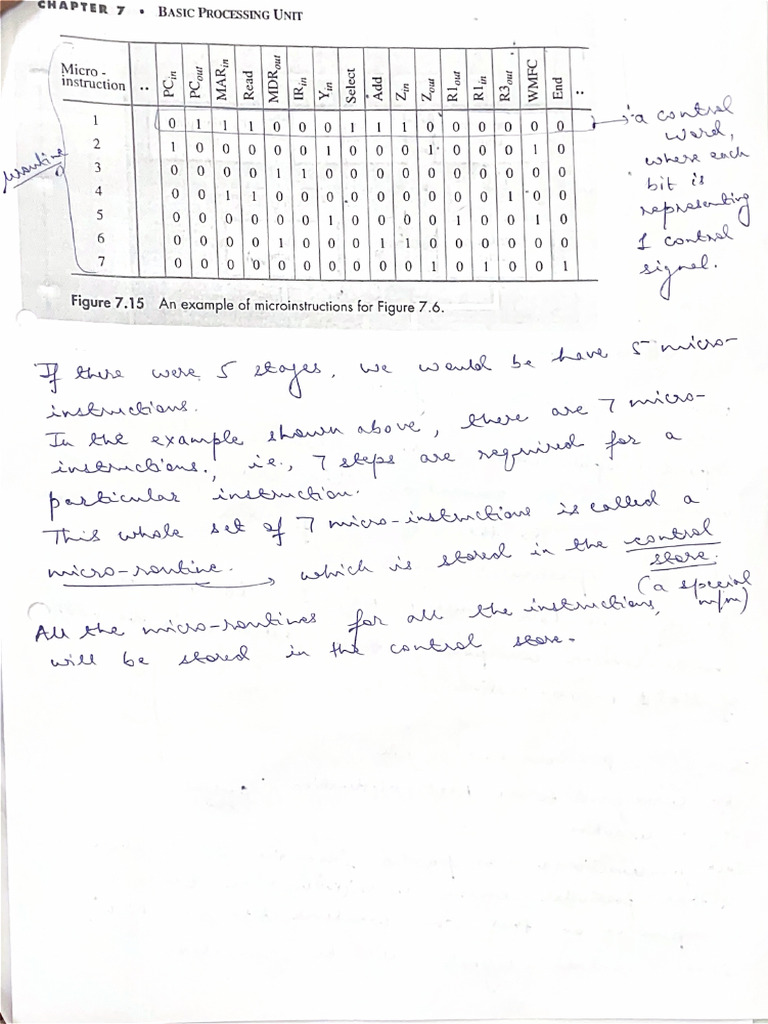 CHAPTER 7 • BASIC PROCESSING UNIT
Micro - instruction .. PCin PCout MARin Read MDRout IRin Yin Select Add Zin Zout R1out R1in R3out WMFC End ..
1 0 1 1 1 0 0 0 1 1 1 0 0 0 0 0 0
2 1 0 0 0 0 0 1 0 0 0 1 0 0 0 1 0
3 0 0 0 0 1 1 0 0 0 0 0 0 0 0 0 0
4 0 0 1 1 0 0 0 0 0 0 0 0 0 1 0 0
5 0 0 0 0 0 0 1 0 0 0 0 1 0 0 1 0
6 0 0 0 0 1 0 0 0 1 1 0 0 0 0 0 0
7 0 0 0 0 0 0 0 0 0 0 1 0 1 0 0 1
μroutine
a control
word,
where each
bit is
representing
1 control
signal.
Figure 7.15 An example of microinstructions for Figure 7.6.
If there were 5 stages, we would be have 5 micro-
instructions.
In the example shown above, there are 7 micro-
instructions, i.e., 7 steps are required for a
particular instruction.
This whole set of 7 micro-instructions is called a
micro-routine. → which is stored in the control
store.
(a special
m/m)
All the micro-routines for all the instructions,
will be stored in the control store.